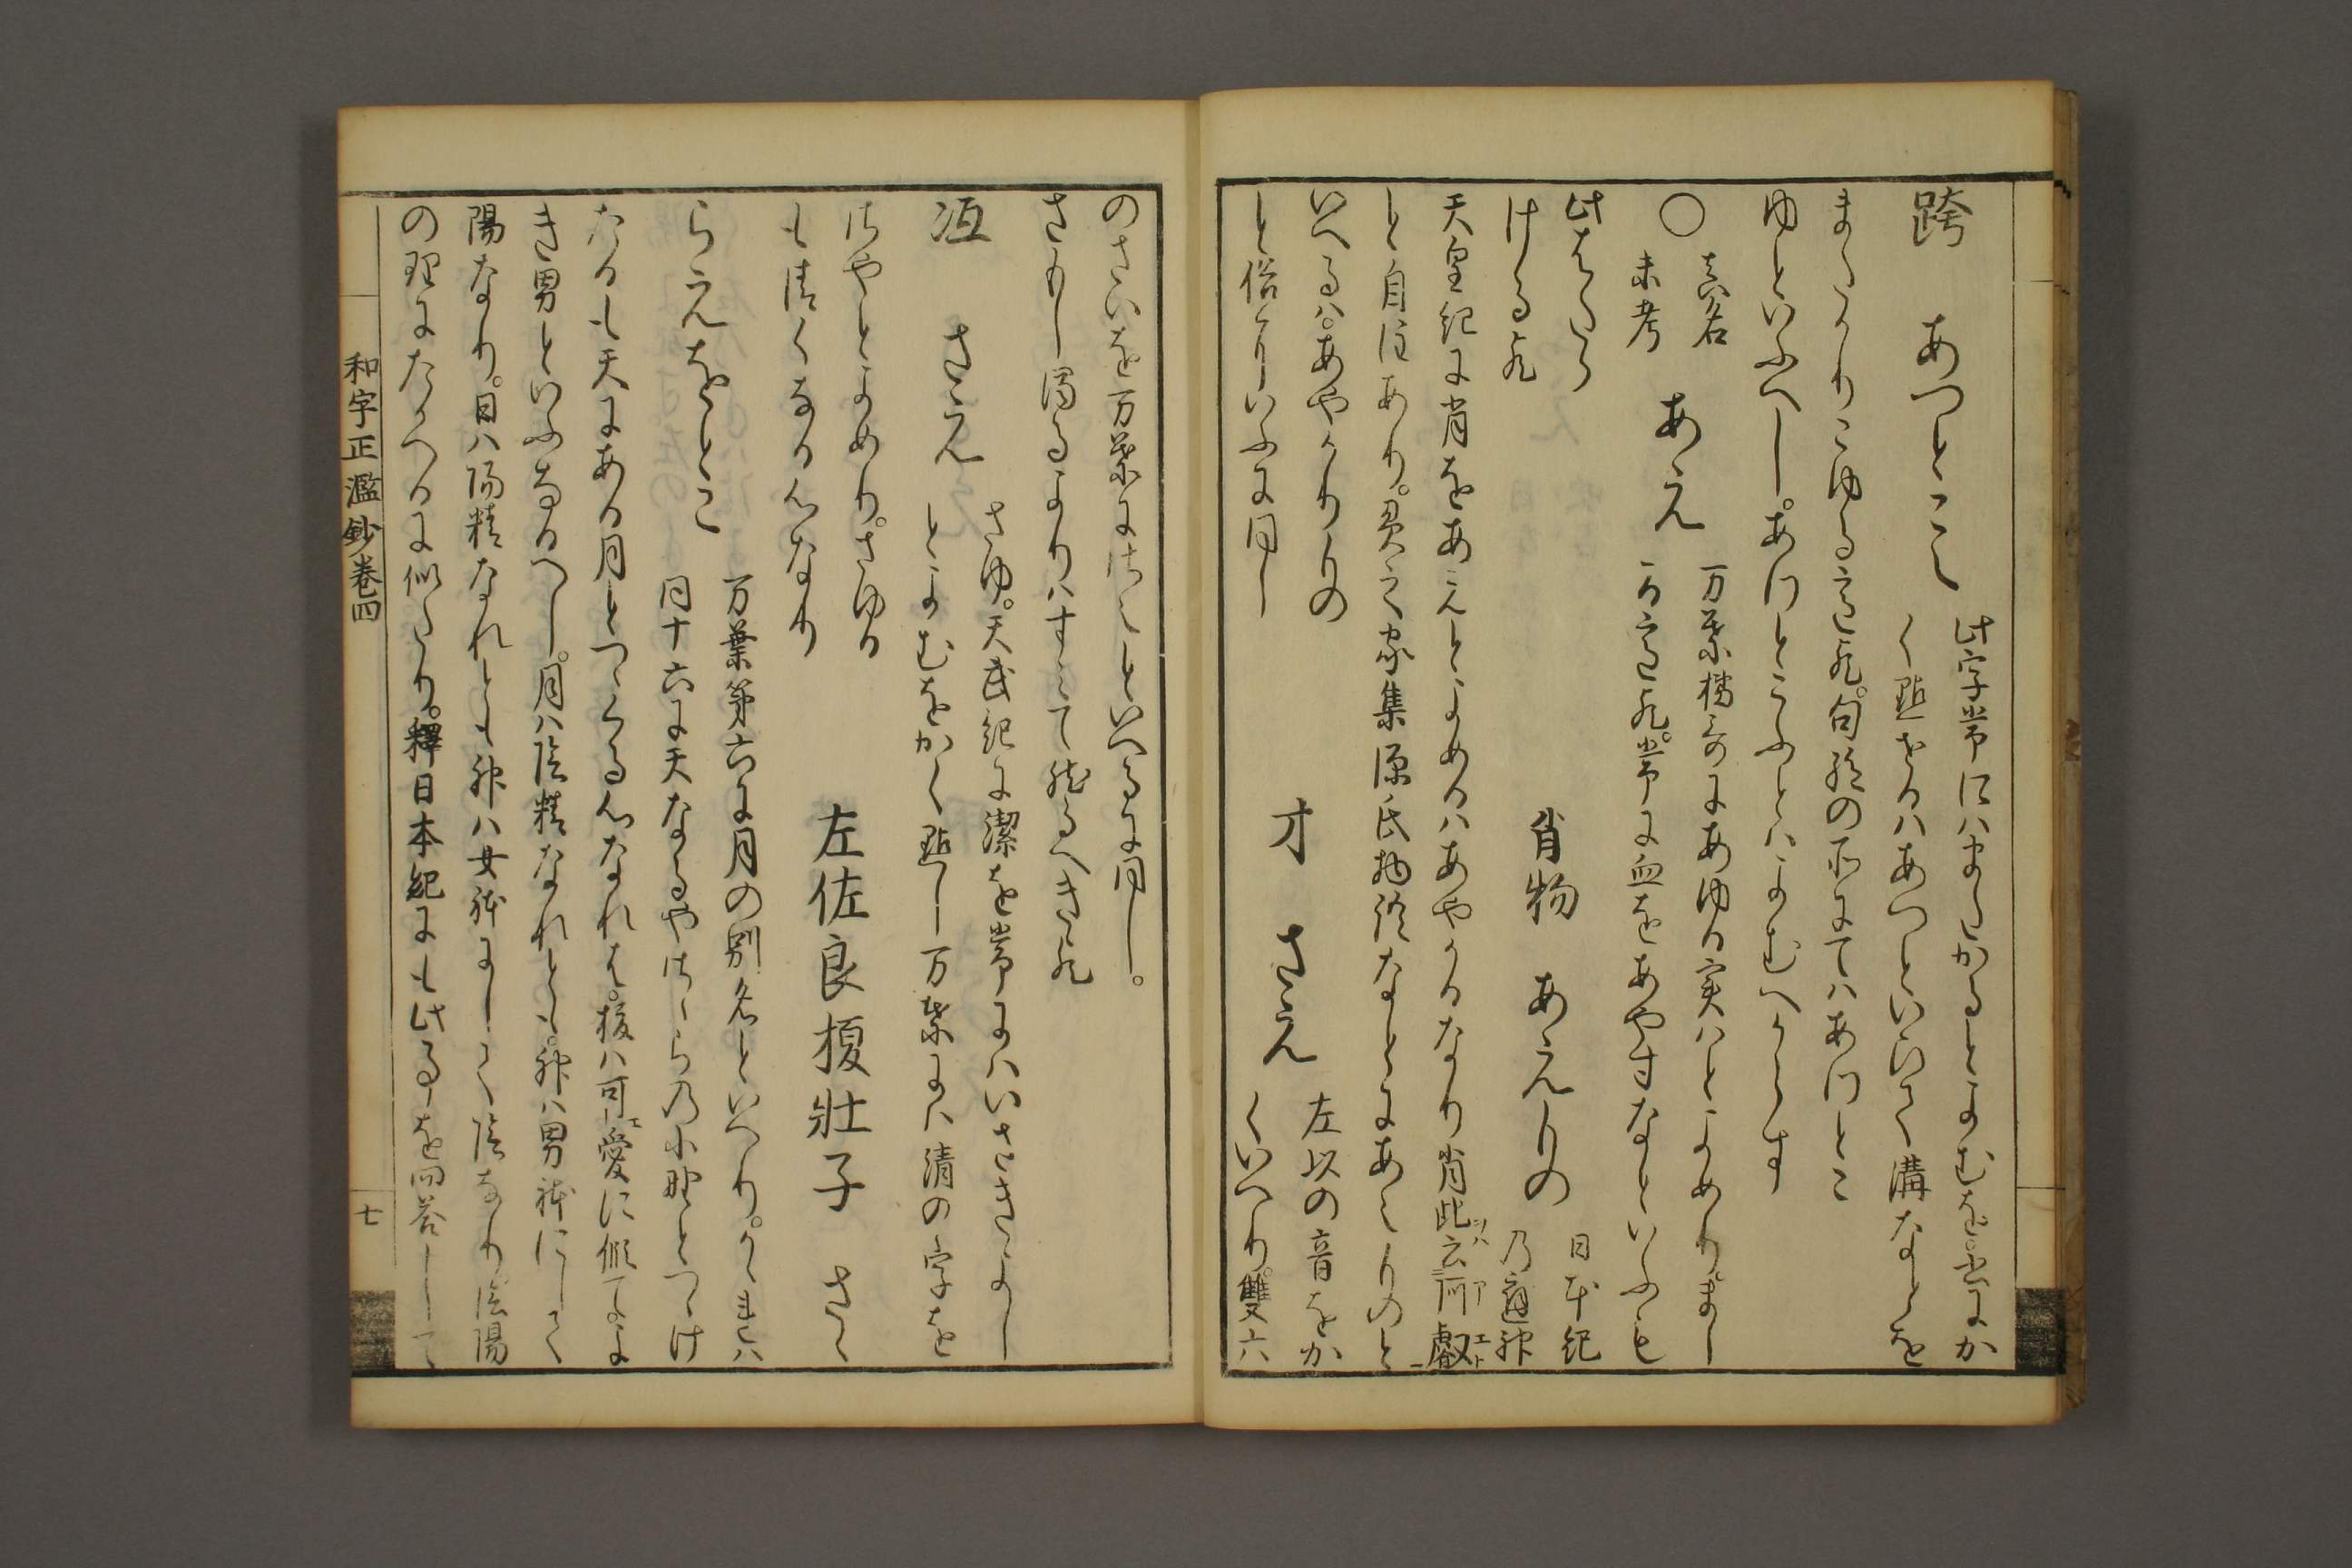 跨 あつとこえ 此字常にはまたかるとよむを。是にか
く點せるはあつといひて溝なとを
またかりこゆる意也。句絶の所にてはあけとこ
ゆといふへし。あけとこふとはよむへからす
○ 真名未考 あえ 万葉橘哥にあゆる実はとよめり。まし
る意也。常に血をあやすなといふも
此はたらける也
肖物 あえもの 日本紀乃應神
天皇紀に肖をあえとよめるはあやかるなり肖此云阿叡
と自注あり。貫之家集源氏物語なとにあえものと
いへるは。あやかりもの
と俗にいふに同し
才 さえ 左以の音をか
くいへり。雙六
のさいを万葉にはさえといへるに同し。
さもし濁るよりはすみて然るへき也
冱 さえ さゆ。天武紀に潔を常にはいさきよし
とよむをかく點し万葉には清の字を
はやとよめり。さゆる
も清くなる心なり
左佐良榎壮子 さゝ
らえをとこ 万葉第六に月の別名といへり。かれは
同十六に天なるやさゝらの小野とつゝけ
たるも天にある月とつゝくる心なれは。榎は可愛に似てよ
き男といふなるへし。月は陰精なれとも。神は男躰にして
陽なり。日は陽精なれとも神は女躰にして陰なり。陰陽
の理にたかへるに似たり。釋日本紀にも此事を問答して
和字正濫鈔巻四
七